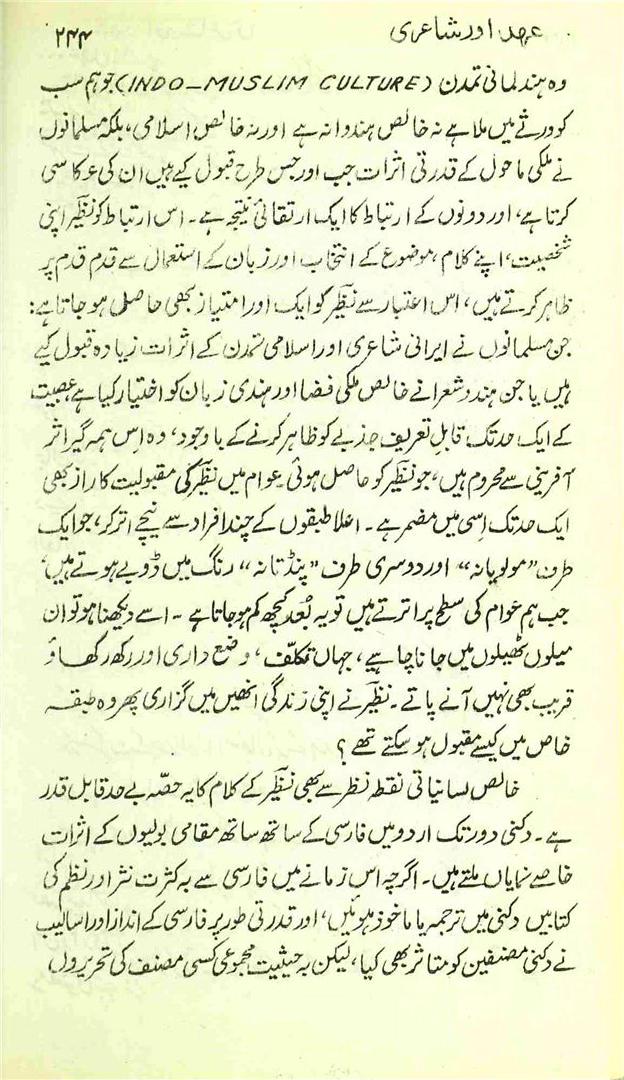 عہد اور شاعری ۲۴۴
وہ ہندلمانی تمدن (INDO-MUSLIM CULTURE) جو ہم سب
کو ورثے میں ملا ہے نہ خالص ہندوانہ ہے اور نہ خالص اسلامی، بلکہ مسلمانوں
نے ملکی ماحول کے قدرتی اثرات جب اور جس طرح قبول کیے ہیں ان کی عکاسی
کرتا ہے، اور دونوں کے ارتباط کا ایک ارتقائی نتیجہ ہے۔ اس ارتباط کو نظیرؔ اپنی
شخصیت، اپنے کلام، موضوع کے انتخاب اور زبان کے استعمال سے قدم قدم پر
ظاہر کرتے ہیں، اس اعتبار سے نظیرؔ کو ایک اور امتیاز بھی حاصل ہو جاتا ہے:
جن مسلمانوں نے ایرانی شاعری اور اسلامی تمدن کے اثرات زیادہ قبول کیے
ہیں یا جن ہندو شعرا نے خالص ملکی فضا اور ہندی زبان کو اختیار کیا ہے عصبیت
کے ایک حد تک قابلِ تعریف جذبے کو ظاہر کرنے کے باوجود، وہ اِس ہمہ گیر اثر
آفرینی سے محروم ہیں، جو نظیرؔ کو حاصل ہوئی۔ عوام میں نظیرؔ کی مقبولیت کا راز بھی
ایک حد تک اِسی میں مضمر ہے۔ اعلا طبقوں کے چند افراد سے نیچے اتر کر، جو ایک
طرف "مولویانہ" اور دوسری طرف "پنڈتانہ" رنگ میں ڈوبے ہوتے ہیں،
جب ہم عوام کی سطح پر اترتے ہیں تو یہ بُعد کچھ کم ہو جاتا ہے۔ اسے دیکھنا ہو تو ان
میلوں ٹھیلوں میں جانا چاہیے، جہاں تکلّف، وضع داری اور رکھ رکھاؤ
قریب بھی نہیں آنے پاتے۔ نظیرؔ نے اپنی زندگی انھیں میں گزاری پھر وہ طبقہ
خاص میں کیسے مقبول ہو سکتے تھے؟
خالص لسانیاتی نقطۂ نظر سے بھی نظیرؔ کے کلام کا یہ حصّہ بے حد قابل قدر
ہے۔ دکنی دور تک اردو میں فارسی کے ساتھ ساتھ مقامی بولیوں کے اثرات
خاصے نمایاں ملتے ہیں۔ اگرچہ اس زمانے میں فارسی سے بہ کثرت نثر اور نظم کی
کتابیں دکنی میں ترجمہ یا ماخوذ ہوئیں، اور قدرتی طور پر فارسی کے انداز اور اسالیب
نے دکنی مصنفین کو متاثر بھی کیا، لیکن بہ حیثیت مجموعی کسی مصنف کی تحریروں